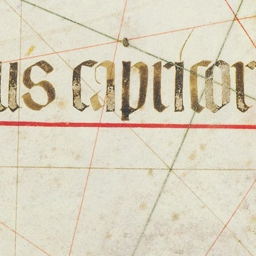 us capricor